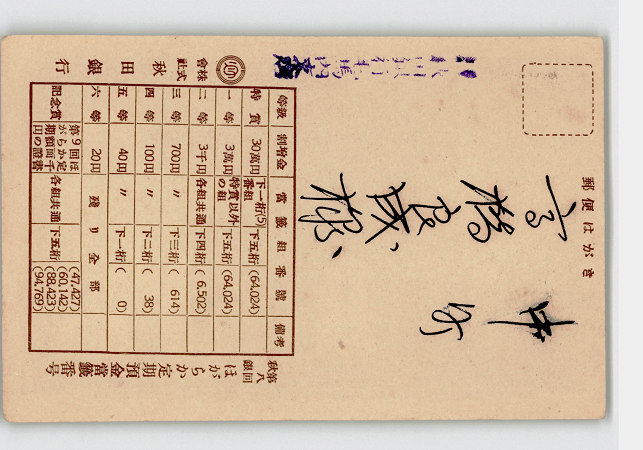 郵便はがき
中 町
高橋良
様
秋銀第八回ほがらか定期預金當籤番号
等級 割増金 當籤組 番號 備考
特賞 30萬円 下一桁(5)番組 下五桁 (64,024)
一等 3萬円 特賞以外の組 下五桁 (64,024)
二等 3千円 各組共通 下四桁 (6,502)
三等 700円 〃 下三桁 (614)
四等 100円 〃 下二桁 (38)
五等 40円 〃 下一桁 (0)
六等 20円 残り全部
記念賞 第9回ほがらか定期額面千円の證書 各組共通 下五桁 (47,427) (60,142) (88,423) (94,769)
株式會社 秋田銀行